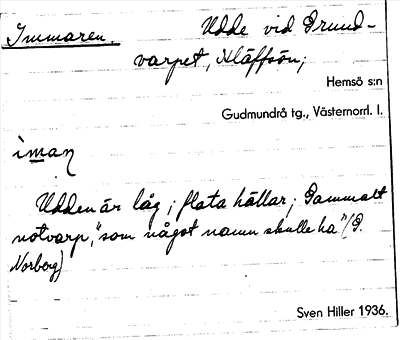 Immaren. Udde vid Grund-
varpet, Kläffsön;
Hemsö s:n
Gudmundrå tg., Västernorrl. l.
iman
Udden är låg; flata hällar; Gammalt
notvarp, "som något namn skulle ha" (G.
Norberg)
Sven Hiller 1936.